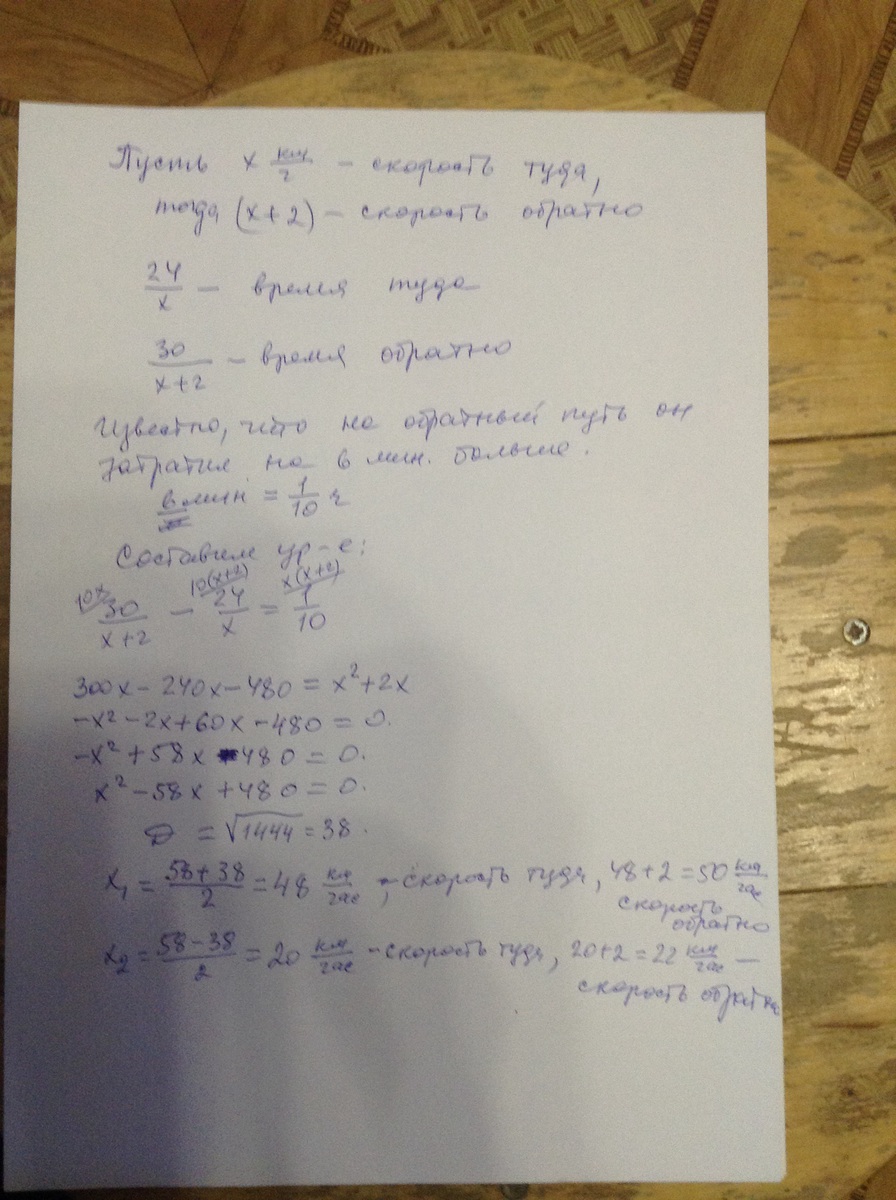 Пусть x км/ч – скорость туда,
тогда (x+2) – скорость обратно
24/x – время туда
30/x+2 – время обратно
Известно, что на обратный путь он
затратил на 6 мин. больше.
6 мин = 1/10 ч
Составим ур-е:
10x 10(x+2) x(x+2)
30/x+2 – 24/x = 1/10
300x – 240x – 480 = x²+2x
–x² – 2x + 60x – 480 = 0.
–x² + 58x – 480 = 0.
x² – 58x + 480 = 0.
D = √1444 = 38.
x₁ = 58+38/2 = 48 км/час – скорость туда, 48+2 = 50 км/час
скорость
обратно
x₂ = 58–38/2 = 20 км/час – скорость туда, 20+2 = 22 км/час –
скорость обратно